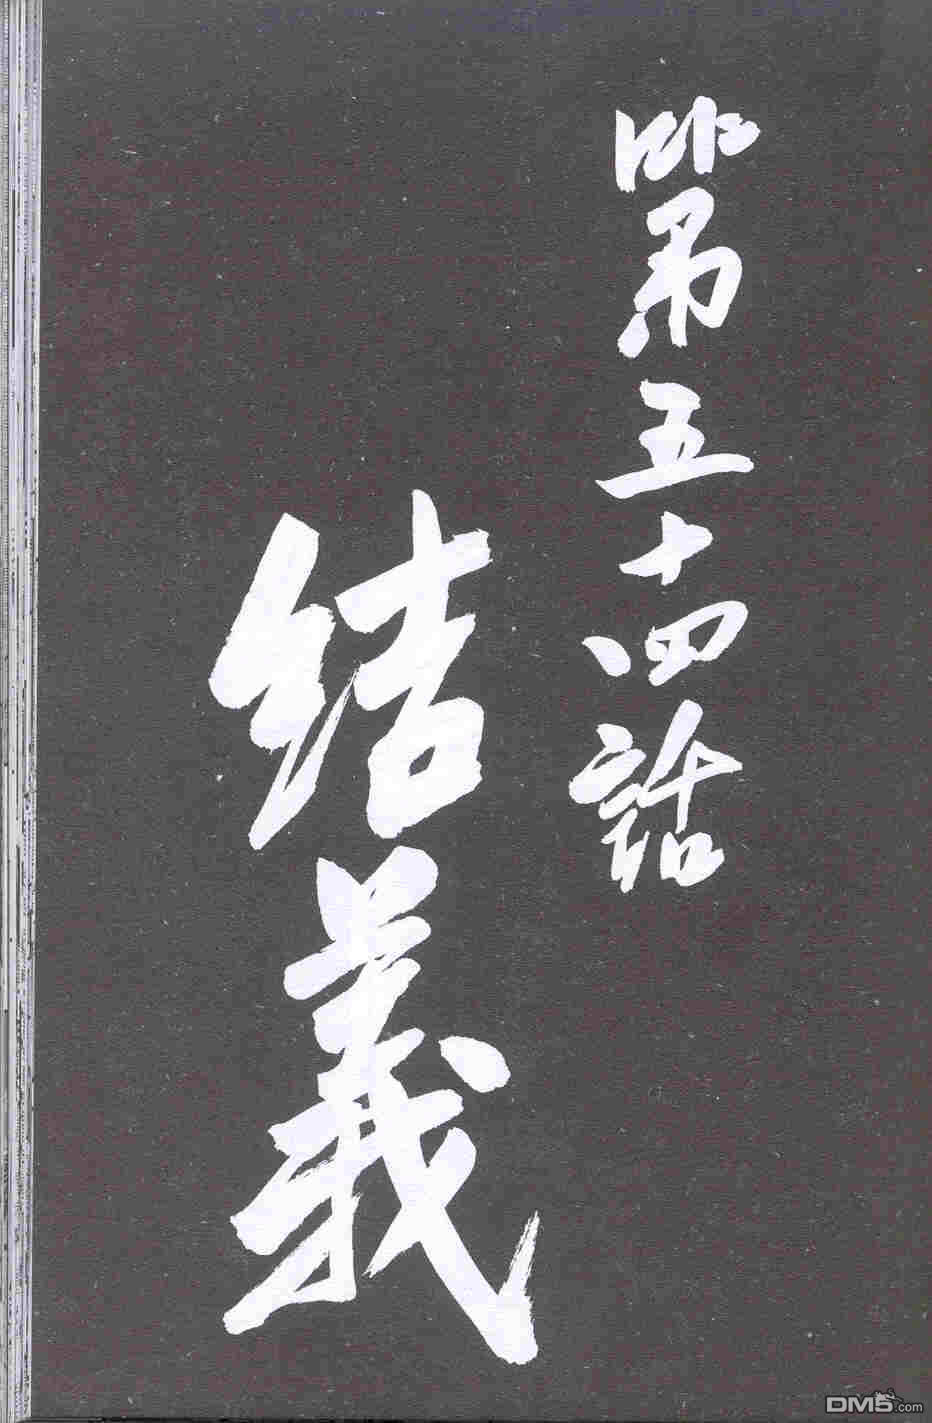 第五十四話
結義
DM5.com